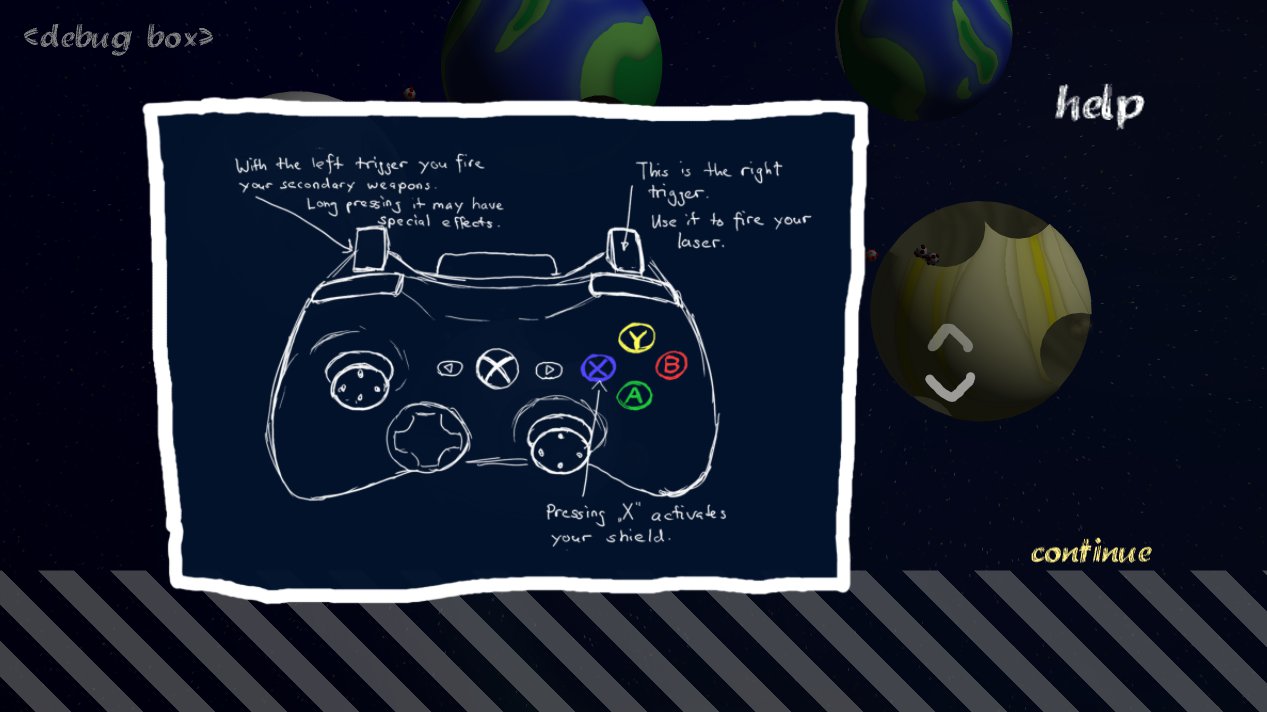 <debug box>
help
With the left trigger you fire
your secondary weapons.
Long pressing it may have
special effects.
This is the right
trigger.
Use it to fire your
laser.
Y
X
B
A
Pressing „X" activates
your shield.
continue